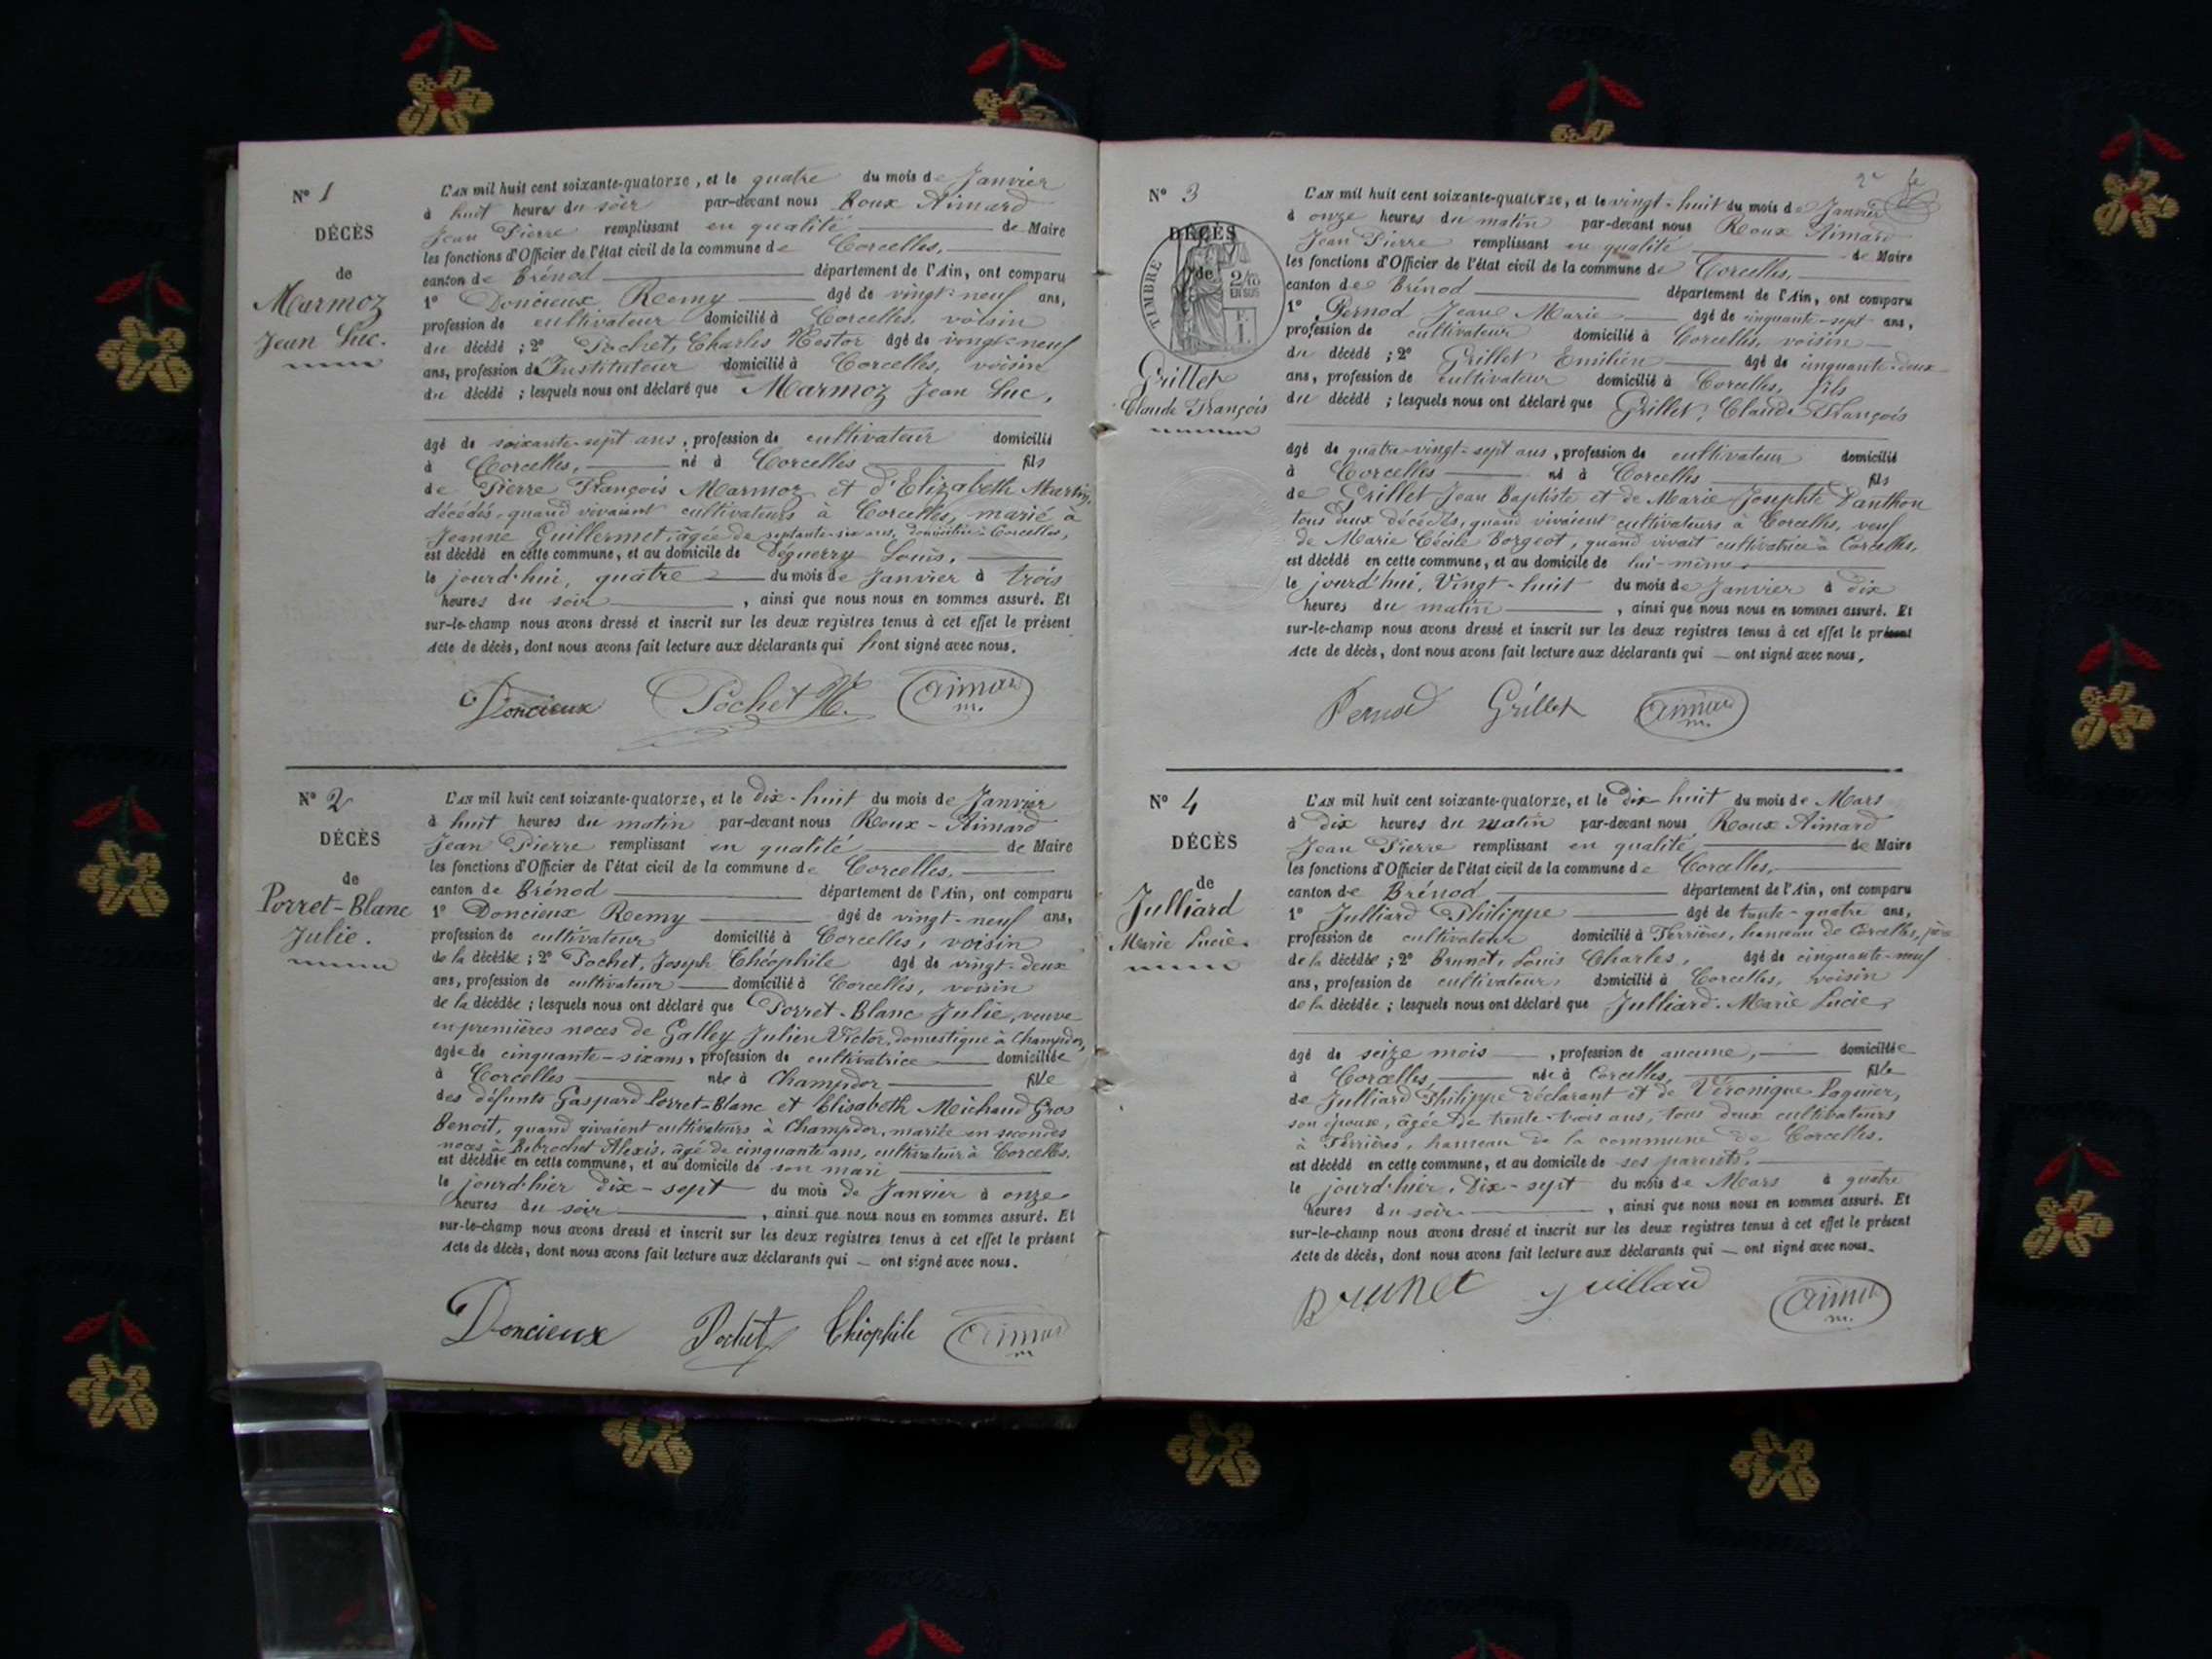 N° 1
DÉCÈS
de
Marmoz
Jean Luc.
L'AN mil huit cent soixante-quatorze, et le quatre du mois de Janvier
à huit heures du soir par-devant nous Roux Aimard
Jean Pierre remplissant en qualité de Maire
les fonctions d'Officier de l'état civil de la commune de Corcelles,
canton de Brénod département de l'Ain, ont comparu
1° Doncieux Remy âgé de vingt-neuf ans,
profession de cultivateur domicilié à Corcelles, voisin
du décédé ; 2° Pochet, Charles Nestor âgé de vingt-neuf
ans, profession d'Instituteur domicilié à Corcelles, voisin
du décédé ; lesquels nous ont déclaré que Marmoz Jean Luc,
âgé de soixante-sept ans, profession de cultivateur domicilié
à Corcelles, né à Corcelles fils
de Pierre François Marmoz et d'Elizabeth Martin,
décédés, quand vivaient cultivateurs à Corcelles, marié à
Jeanne Guillermet, âgée de septante-six ans, domiciliée à Corcelles,
est décédé en cette commune, et au domicile de Déguerry Louis,
le jourd'hui, quatre du mois de Janvier à trois
heures du soir, ainsi que nous nous en sommes assuré. Et
sur-le-champ nous avons dressé et inscrit sur les deux registres tenus à cet effet le présent
Acte de décès, dont nous avons fait lecture aux déclarants qui ont signé avec nous.
Doncieux Pochet N. Aimard m.
N° 2
DÉCÈS
de
Porret-Blanc
Julie.
L'AN mil huit cent soixante-quatorze, et le dix-huit du mois de Janvier
à huit heures du matin par-devant nous Roux-Aimard
Jean Pierre remplissant en qualité de Maire
les fonctions d'Officier de l'état civil de la commune de Corcelles,
canton de Brénod département de l'Ain, ont comparu
1° Doncieux Remy âgé de vingt-neuf ans,
profession de cultivateur domicilié à Corcelles, voisin
de la décédée ; 2° Pochet, Joseph Théophile âgé de vingt-deux
ans, profession de cultivateur domicilié à Corcelles, voisin
de la décédée ; lesquels nous ont déclaré que Porret-Blanc Julie, veuve
en premières noces de Galley Julien Victor, domestique à Champdor,
âgée de cinquante-six ans, profession de cultivatrice domiciliée
à Corcelles née à Champdor fille
des défunts Gaspard Porret-Blanc et Elisabeth Michaud Gros
Benoit, quand vivaient cultivateurs à Champdor, mariée en secondes
noces à Bebrochet Alexis, âgé de cinquante ans, cultivateur à Corcelles.
est décédée en cette commune, et au domicile de son mari
le jourd'hier dix-sept du mois de Janvier à onze
heures du soir, ainsi que nous nous en sommes assuré. Et
sur-le-champ nous avons dressé et inscrit sur les deux registres tenus à cet effet le présent
Acte de décès, dont nous avons fait lecture aux déclarants qui — ont signé avec nous.
Doncieux Pochet Théophile Aimard m
2e
N° 3
DÉCÈS
de
TIMBRE
2/10
EN SUS
Grillet
Claude François
L'AN mil huit cent soixante-quatorze, et le vingt-huit du mois de Janvier
à onze heures du matin par-devant nous Roux Aimard
Jean Pierre remplissant en qualité de Maire
les fonctions d'Officier de l'état civil de la commune de Corcelles,
canton de Brénod département de l'Ain, ont comparu
1° Pernod Jean Marie âgé de cinquante-sept ans,
profession de cultivateur domicilié à Corcelles, voisin
du décédé ; 2° Grillet Emilien âgé de cinquante-deux
ans, profession de cultivateur domicilié à Corcelles, fils
du décédé ; lesquels nous ont déclaré que Grillet, Claude François
âgé de quatre-vingt-sept ans, profession de cultivateur domicilié
à Corcelles né à Corcelles fils
de Grillet Jean Baptiste et de Marie Josephte Danthon
tous deux décédés, quand vivaient cultivateurs à Corcelles, veuf
de Marie Cécile Borgeot, quand vivait cultivatrice à Corcelles,
est décédé en cette commune, et au domicile de lui-même
le jourd'hui, Vingt-huit du mois de Janvier à dix
heures du matin, ainsi que nous nous en sommes assuré. Et
sur-le-champ nous avons dressé et inscrit sur les deux registres tenus à cet effet le présent
Acte de décès, dont nous avons fait lecture aux déclarants qui — ont signé avec nous.
Pernod Grillet Aimard m.
N° 4
DÉCÈS
de
Julliard
Marie Lucie.
L'AN mil huit cent soixante-quatorze, et le Dix-huit du mois de Mars
à dix heures du matin par-devant nous Roux Aimard
Jean Pierre remplissant en qualité de Maire
les fonctions d'Officier de l'état civil de la commune de Corcelles,
canton de Brénod département de l'Ain, ont comparu
1° Julliard Philippe âgé de trente-quatre ans,
profession de cultivateur domicilié à Ferrières, hameau de Corcelles, père
de la décédée ; 2° Brunet, Louis Charles, âgé de cinquante-neuf
ans, profession de cultivateur, domicilié à Corcelles, voisin
de la décédée ; lesquels nous ont déclaré que Julliard Marie Lucie,
âgé de seize mois, profession de aucune, domiciliée
à Corcelles, née à Corcelles, fille
de Julliard Philippe déclarant et de Véronique Paquier,
son épouse, âgée de trente-trois ans, tous deux cultivateurs
à Ferrières, hameau de la commune de Corcelles.
est décédé en cette commune, et au domicile de ses parents,
le jourd'hier, Dix-sept du mois de Mars à quatre
heures du soir, ainsi que nous nous en sommes assuré. Et
sur-le-champ nous avons dressé et inscrit sur les deux registres tenus à cet effet le présent
Acte de décès, dont nous avons fait lecture aux déclarants qui — ont signé avec nous.
Brunet Juillard Aimard m.